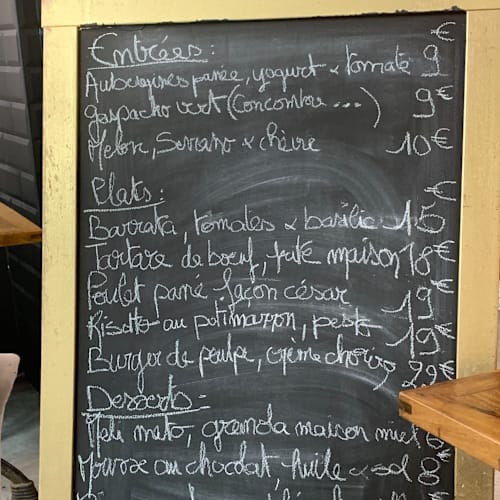 Entrées: €
Aubergines panée, yogurt & tomate 9
gaspacho vert (Concombre ...) 9€
Melon, Serrano & chèvre 10€
Plats: €
Barrata, tomates & basilic 15
Tartare de boeuf, frite maison 18€
Poulet pané façon césar 19€
Risotto au potimarron, pesto 19€
Burger de poulpe, crème chorizo 22€
Desserts:
mato, granola maison miel 6
Mousse au chocolat, huile & sel 8€